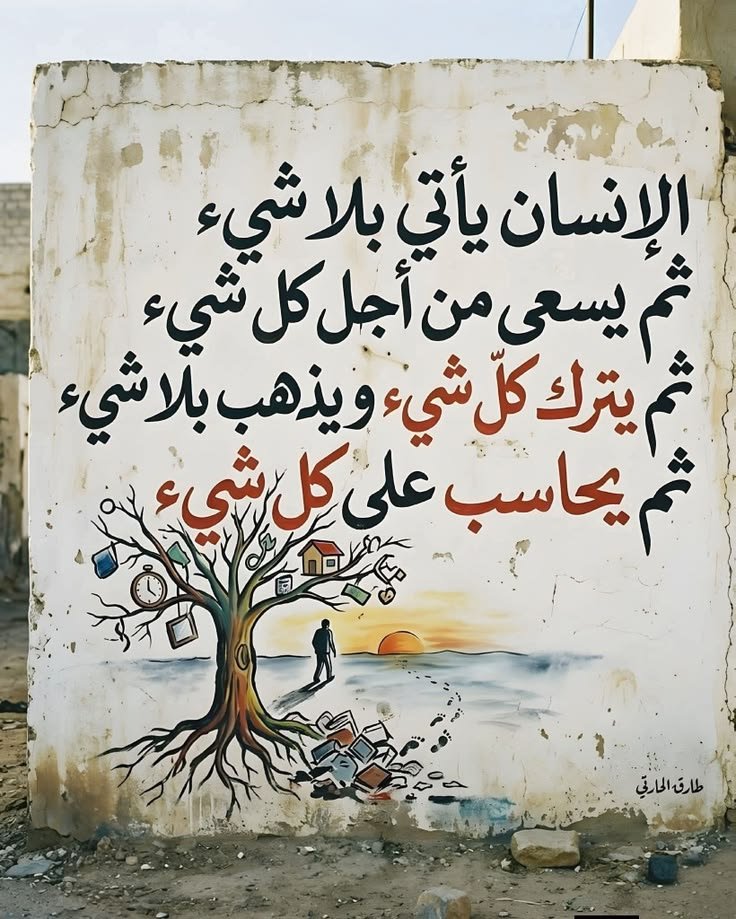 الإنسان يأتي بلا شيء
ثم يسعى من أجل كل شيء
ثم يترك كلّ شيء ويذهب بلا شيء
ثم يحاسب على كل شيء
طارق الحارثي